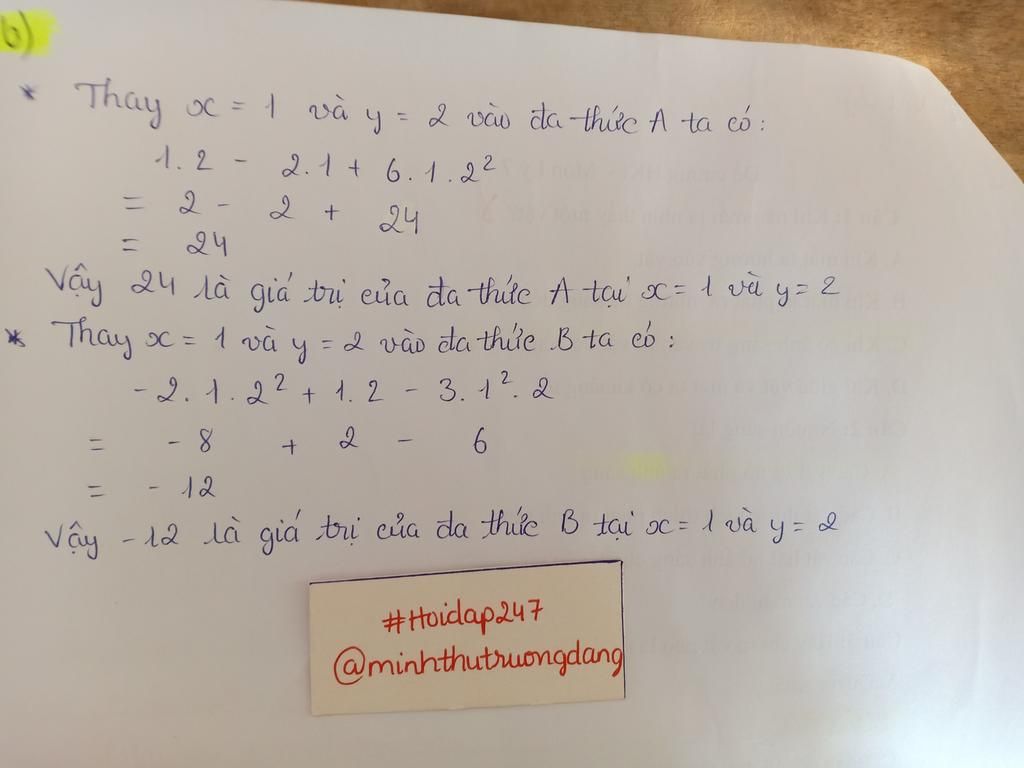 b)
* Thay x = 1 và y = 2 vào đa thức A ta có:
1.2 - 2.1 + 6.1.2²
= 2 - 2 + 24
= 24
Vậy 24 là giá trị của đa thức A tại x = 1 và y = 2
* Thay x = 1 và y = 2 vào đa thức B ta có:
-2.1.2² + 1.2 - 3.1².2
= -8 + 2 - 6
= -12
Vậy -12 là giá trị của đa thức B tại x = 1 và y = 2
#Hoidap247
@minhthutruongdang